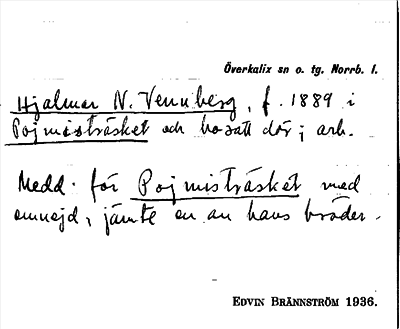 Överkalix sn o. tg. Norrb. l.
Hjalmar N. Vennberg, f. 1889 i
Pojmisträsket och bosatt där; arb.
Medd. för Pojmisträsket med
omnejd, jämte en av hans bröder.
EDVIN BRÄNNSTRÖM 1936.